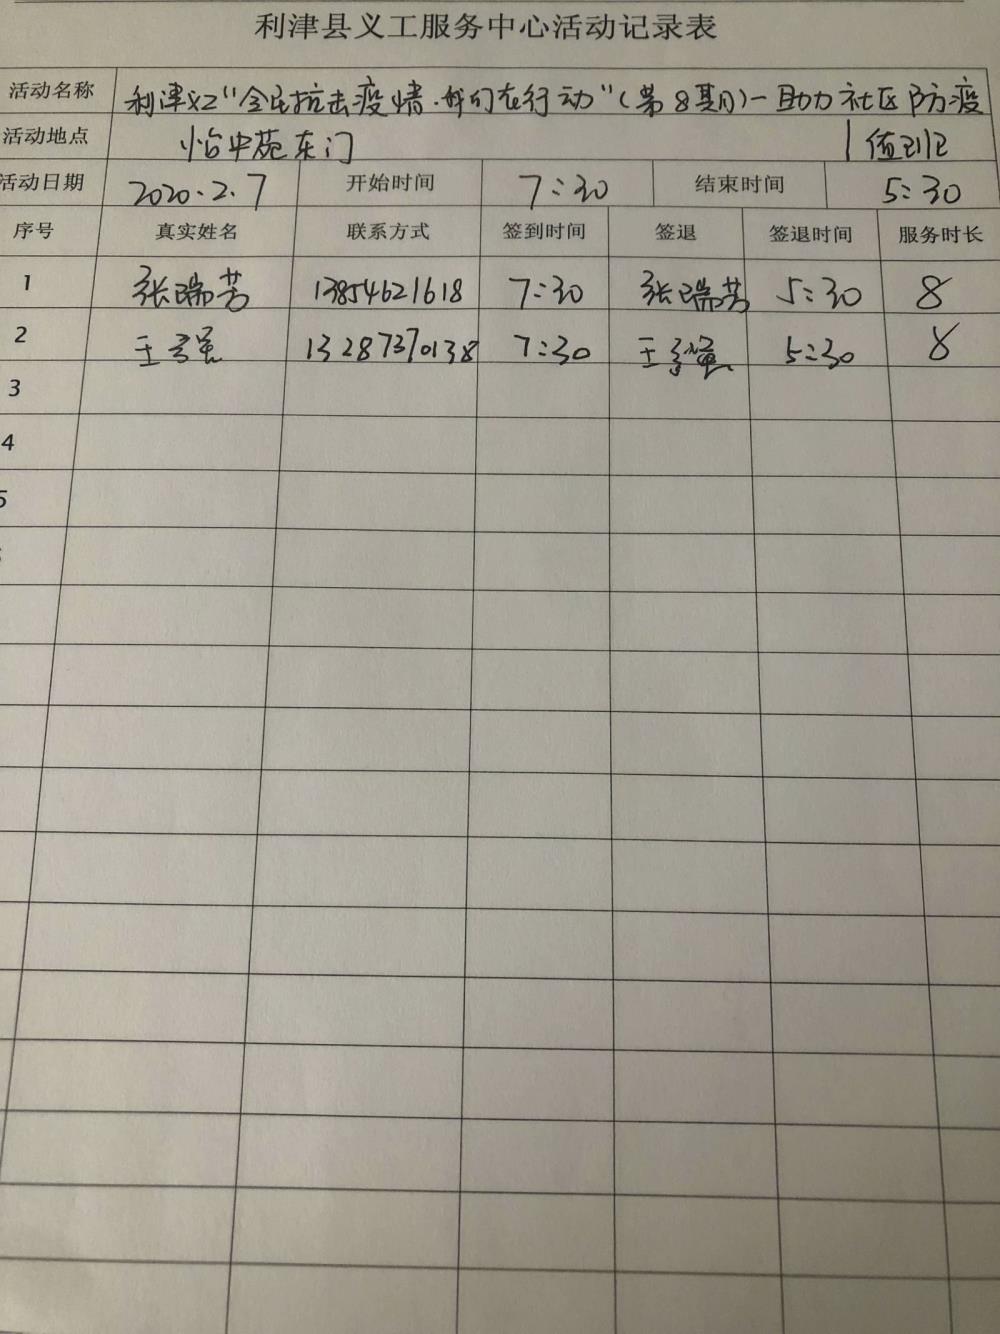 利津县义工服务中心活动记录表
活动名称 利津义工"全民抗击疫情.我们在行动"(第8期)—助力社区防疫
活动地点 怡中苑东门 值班
活动日期 2020.2.7 开始时间 7:30 结束时间 5:30
序号 真实姓名 联系方式 签到时间 签退 签退时间 服务时长
1 张瑞芳 13854621618 7:30 张瑞芳 5:30 8
2 王 13287370138 7:30 王 5:30 8
3
4
5